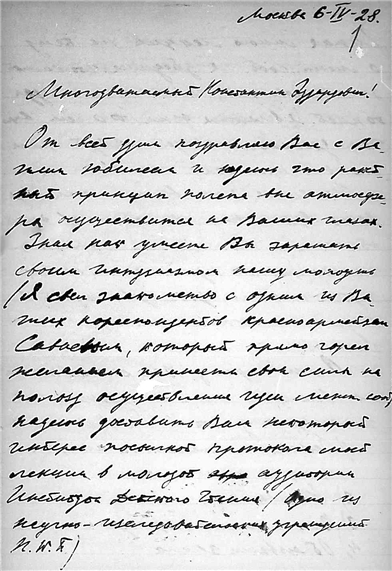 Москва 6-IV-28.
Многоуважаемый Константин Эдуардович!
От всей души поздравляю Вас с Ва-
шим юбилеем и надеюсь что ракет-
ный принцип полета вне атмосфе-
ры осуществится на Ваших глазах.
Зная как умеете Вы заражать
своим энтузиазмом нашу молодежь
(Я свел знакомство с одним из Ва-
ших корреспондентов красноармейцем
который прямо горел
желанием принести свои силы на
пользу осуществления идеи меж.
надеюсь доставить Вам некоторый
интерес посылкой протокола моей
лекции в молодой аудитории
Института Детского Чтения (Одно из
научно-исследовательских учреждений
Н.К.П.)